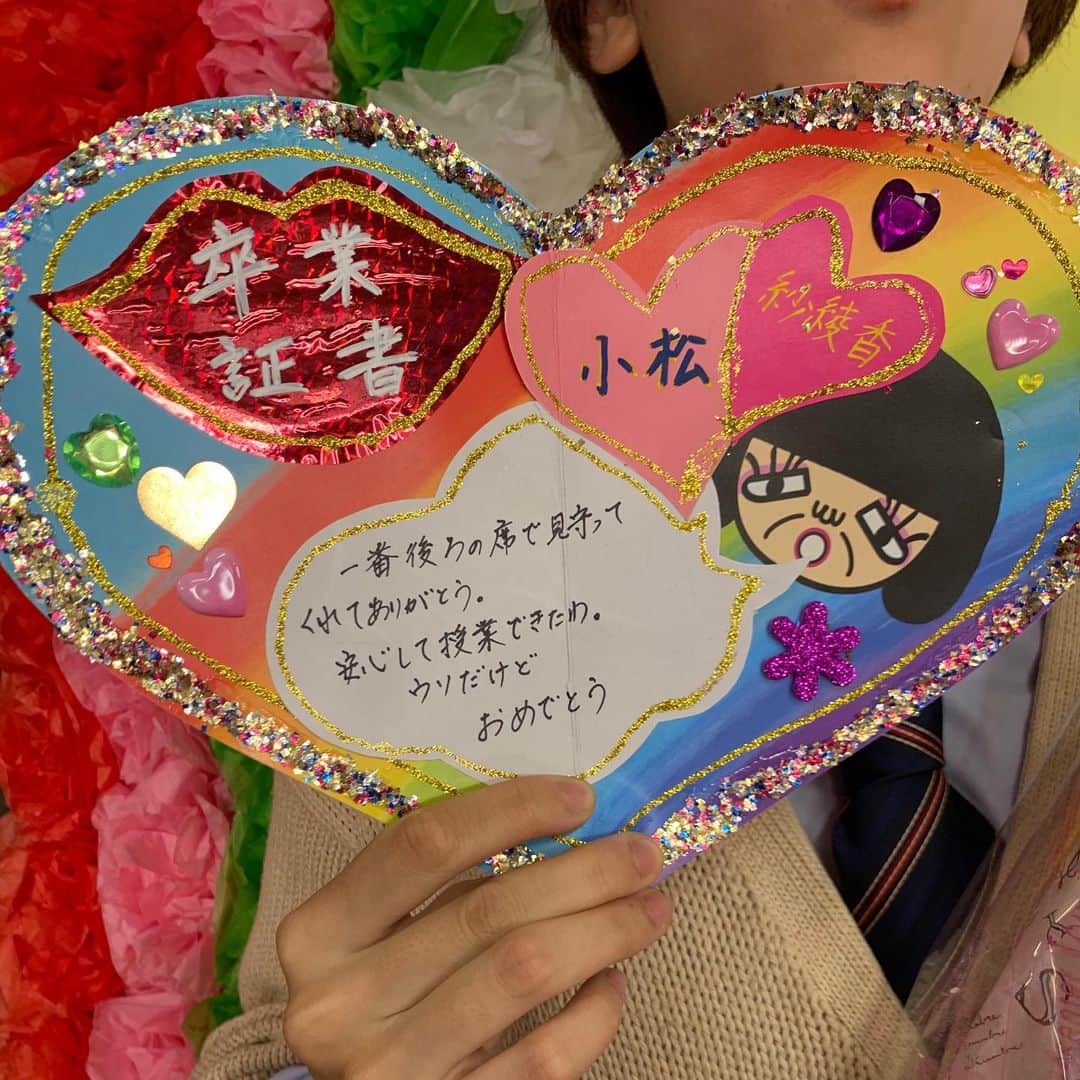 卒業
証書
小松
紗綾香
一番後ろの席で見守って
くれてありがとう。
安心して授業できたわ。
ウソだけど
おめでとう